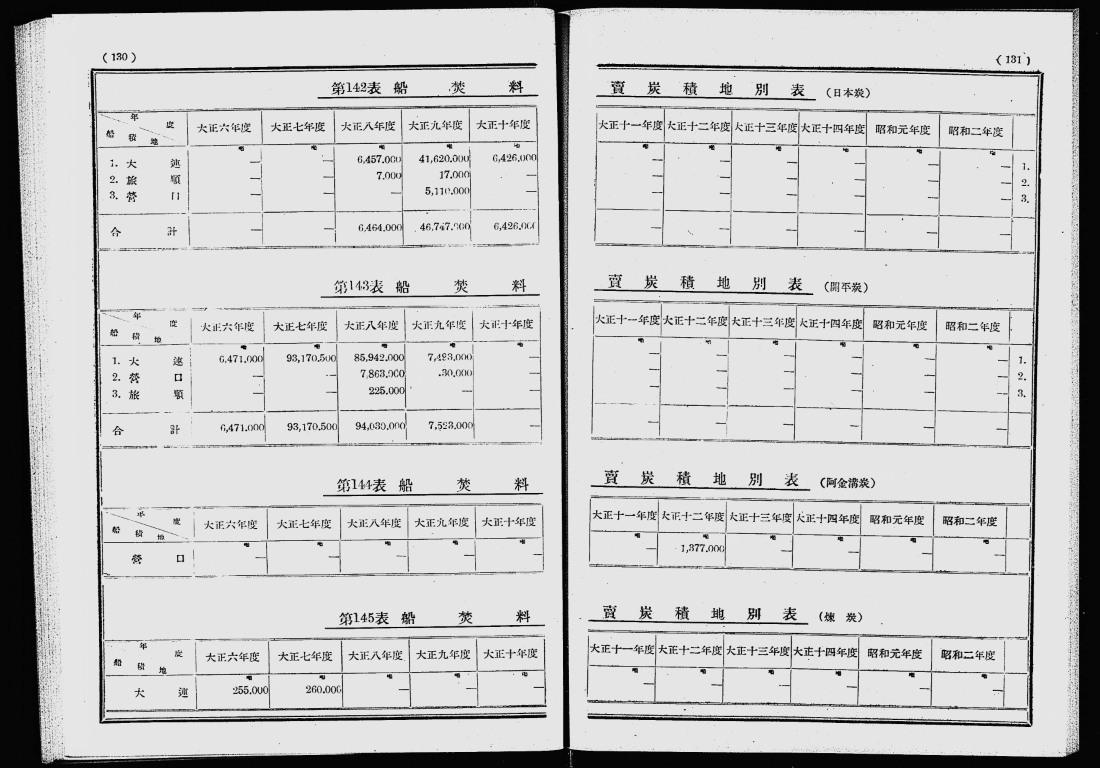 ( 130 )
第142表 船 焚 料
年 度
船 積 地
大正六年度 大正七年度 大正八年度 大正九年度 大正十年度
噸 噸 噸 噸 噸
1. 大 連 — — 6,457.000 41,620.000 6,426.000
2. 旅 順 — — 7.000 17.000 —
3. 營 口 — — — 5,110.000 —
合 計 — — 6,464.000 46,747.000 6,426.000
第143表 船 焚 料
年 度
船 積 地
大正六年度 大正七年度 大正八年度 大正九年度 大正十年度
噸 噸 噸 噸 噸
1. 大 連 6,471.000 93,170.500 85,942.000 7,493.000 —
2. 營 口 — — 7,863.000 30.000 —
3. 旅 順 — — 225.000 — —
合 計 6,471.000 93,170.500 94,030.000 7,523.000 —
第144表 船 焚 料
年 度
船 積 地
大正六年度 大正七年度 大正八年度 大正九年度 大正十年度
噸 噸 噸 噸 噸
營 口 — — — — —
第145表 船 焚 料
年 度
船 積 地
大正六年度 大正七年度 大正八年度 大正九年度 大正十年度
噸 噸 噸 噸 噸
大 連 255.000 260.000 — — —
( 131 )
賣 炭 積 地 別 表 (日本炭)
大正十一年度 大正十二年度 大正十三年度 大正十四年度 昭和元年度 昭和二年度
噸 噸 噸 噸 噸 噸
— — — — — — 1.
— — — — — — 2.
— — — — — — 3.
— — — — — —
賣 炭 積 地 別 表 (開平炭)
大正十一年度 大正十二年度 大正十三年度 大正十四年度 昭和元年度 昭和二年度
噸 噸 噸 噸 噸 噸
— — — — — — 1.
— — — — — — 2.
— — — — — — 3.
— — — — — —
賣 炭 積 地 別 表 (阿金溝炭)
大正十一年度 大正十二年度 大正十三年度 大正十四年度 昭和元年度 昭和二年度
噸 噸 噸 噸 噸 噸
— 1,377.000 — — — —
賣 炭 積 地 別 表 (煉 炭)
大正十一年度 大正十二年度 大正十三年度 大正十四年度 昭和元年度 昭和二年度
噸 噸 噸 噸 噸 噸
— — — — — —